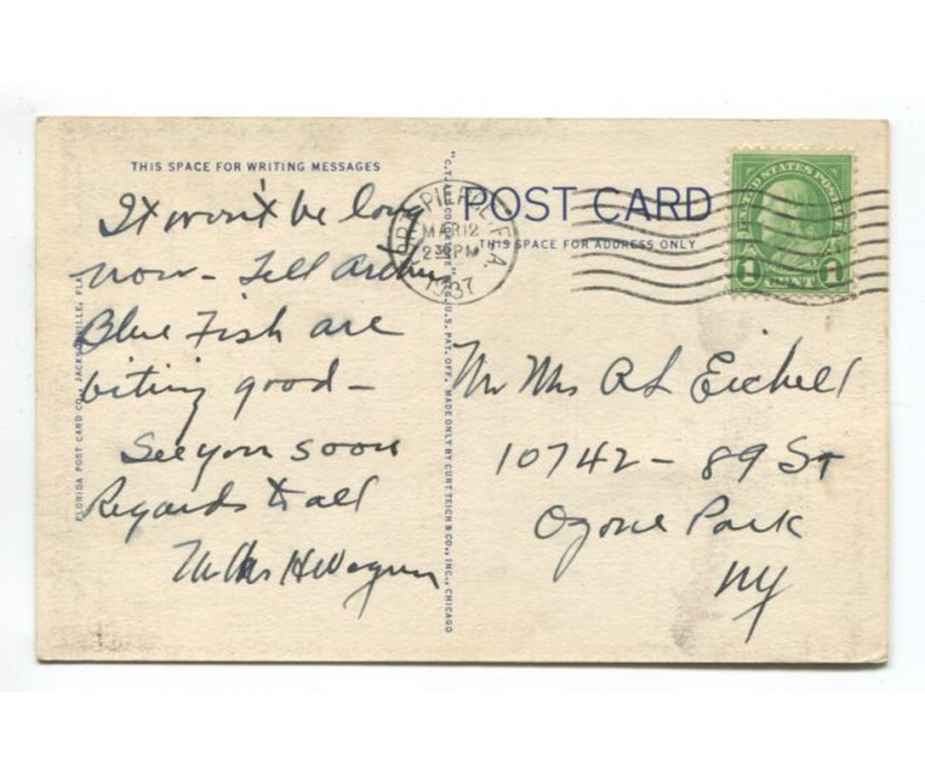 THIS SPACE FOR WRITING MESSAGES
It won't be long
now - Tell Arthur
Blue Fish are
biting good -
See you soon
Regards to all
Mr Mrs H Wagner
FLORIDA POST CARD CO., JACKSONVILLE, FLA.
"C.T. ART-COLORTONE" REG. U.S. PAT. OFF. MADE ONLY BY CURT TEICH & CO., INC., CHICAGO
POST CARD
THIS SPACE FOR ADDRESS ONLY
FORT PIERCE, FLA.
MAR 12
PM
1937
UNITED STATES POSTAGE
1 CENT 1
Mr Mrs A L Eichell
10742 - 89 St
Ozone Park
NY